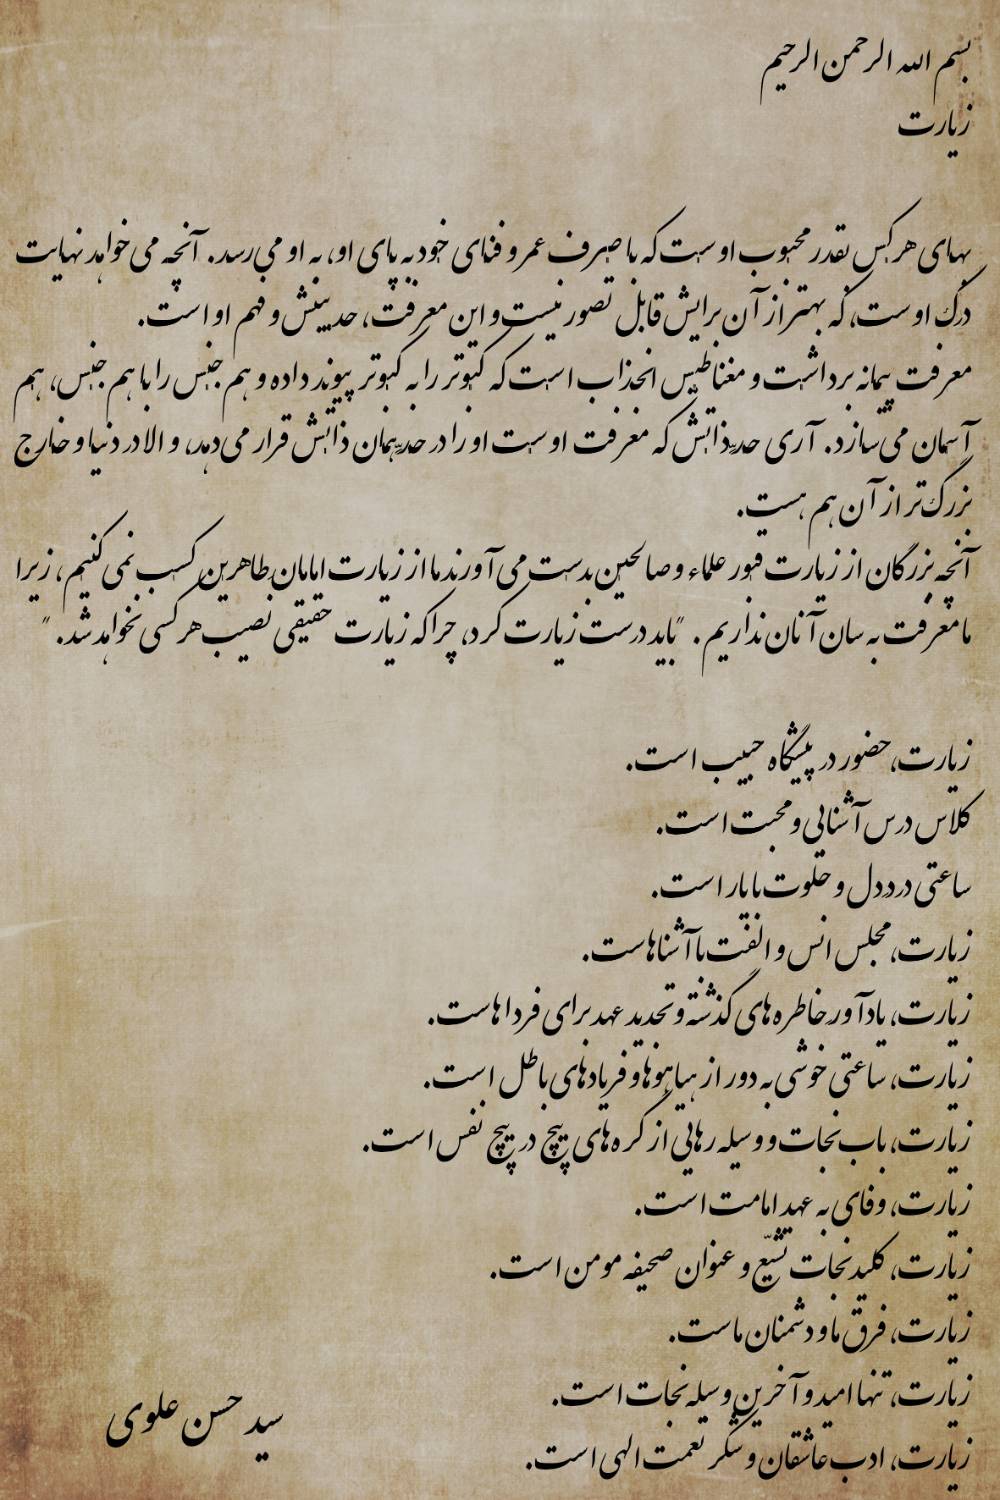 بسم الله الرحمن الرحیم
زیارت
بهای هر کس بقدر محبوب اوست که با صرف عمر و فنای خود به پای او، به او می‌رسد. آنچه می‌خواهد نهایت
درک اوست، که بهتر از آن برایش قابل تصور نیست و این معرفت، حد بینش و فهم او است.
معرفت پیمانه برداشت و مغناطیس انجذاب است که کبوتر را به کبوتر پیوند داده و هم جنس را با هم جنس، هم
آسمان می‌سازد. آری حدّ ذاتش که معرفت اوست او را در حدّ پیمان ذاتش قرار می‌دهد، و الا در دنیا و خارج
بزرگ‌تر از آن هم هست.
آنچه بزرگان از زیارت قبور علماء و صالحین بدست می‌آورند ما از زیارت امامان طاهرین کسب نمی‌کنیم، زیرا
ما معرفت به سان آنان نداریم. "باید درست زیارت کرد، چرا که زیارت حقیقی نصیب هر کسی نخواهد شد."
زیارت، حضور در پیشگاه حبیب است.
کلاس درس آشنایی و محبت است.
ساعتی درددل و خلوت با یار است.
زیارت، مجلس انس و الفت با آشناهاست.
زیارت، یادآور خاطره‌های گذشته و تجدید عهد برای فرداهاست.
زیارت، ساعتی خوشی به دور از هیاهوها و فریادهای باطل است.
زیارت، باب نجات و وسیله رهایی از کره‌های پیچ در پیچ نفس است.
زیارت، وفای به عهد امامت است.
زیارت، کلید نجات تشیّع و عنوان صحیفه مومن است.
زیارت، فرق ما و دشمنان ماست.
زیارت، تنها امید و آخرین وسیله نجات است.
زیارت، ادب عاشقان و شکر نعمت الهی است.
سید حسن علوی